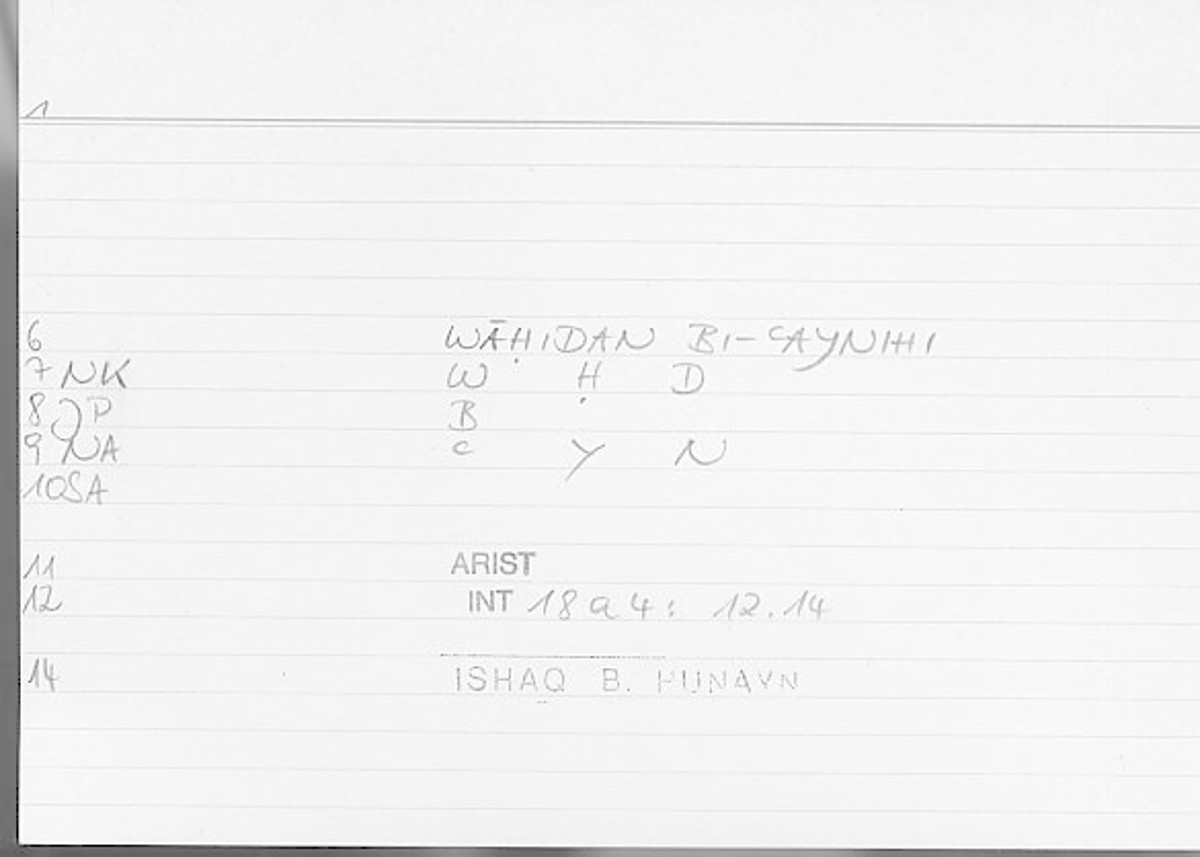 1
6 WĀḤIDAN BI-ʿAYNIHI
7 NK W Ḥ D
8 JP B
9 NA ʿ Y N
10 SA
11 ARIST
12 INT 18 a 4: 12.14
14 ISHAQ B. HUNAYN